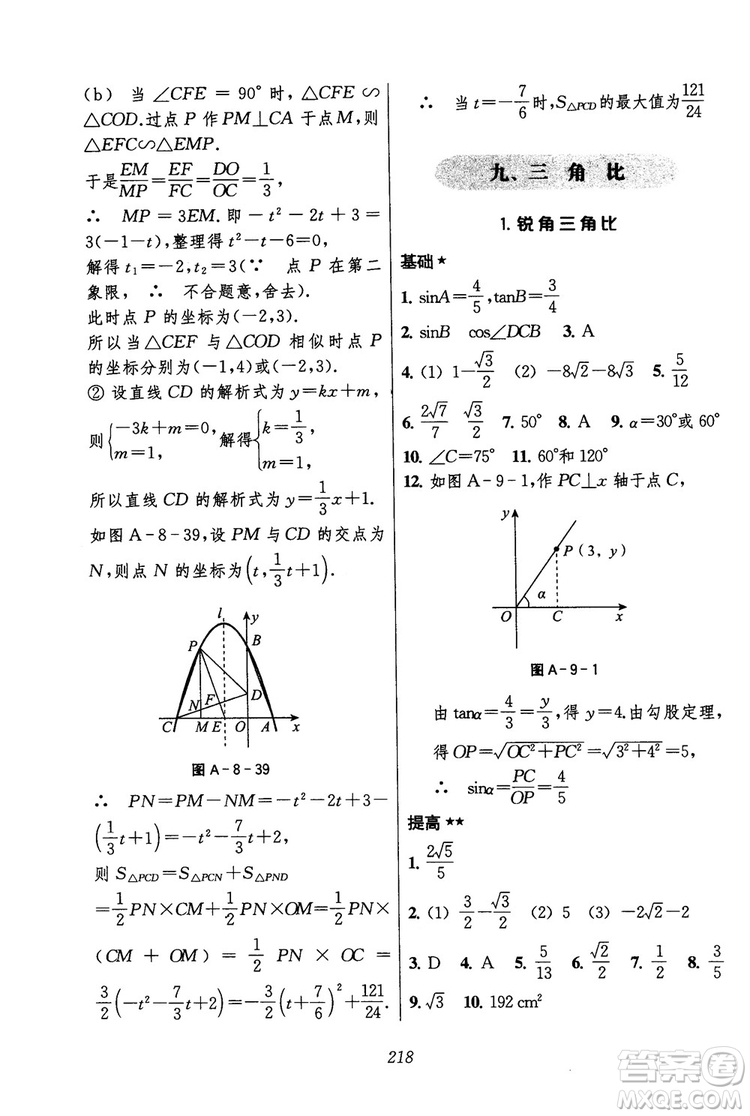 (b) 当 ∠CFE = 90° 时, △CFE ∽
△COD.过点 P 作 PM⊥CA 于点 M, 则
△EFC∽△EMP.
于是 EM/MP = EF/FC = DO/OC = 1/3,
∴ MP = 3EM.即 −t²−2t+3 =
3(−1−t),整理得 t²−t−6=0.
解得 t₁=−2,t₂=3(∵ 点 P 在第二
象限, ∴ 不合题意,舍去).
此时点 P 的坐标为(−2,3).
所以当 △CEF 与 △COD 相似时点 P
的坐标分别为(−1,4)或(−2,3).
② 设直线 CD 的解析式为 y=kx+m,
则{−3k+m=0, m=1, 解得{k=1/3, m=1.
所以直线 CD 的解析式为 y=1/3x+1.
如图 A-8-39,设 PM 与 CD 的交点为
N,则点 N 的坐标为(t,1/3t+1).
l y
P B
N F D
C M E O A x
图 A-8-39
∴ PN=PM−NM=−t²−2t+3−
(1/3t+1)=−t²−7/3t+2.
则 S△PCD=S△PCN+S△PND
=1/2PN×CM+1/2PN×OM=1/2PN×
(CM + OM) = 1/2 PN × OC =
3/2(−t²−7/3t+2)=−3/2(t+7/6)²+121/24.
∴ 当 t=−7/6时,S△PCD的最大值为121/24
九、三角比
1. 锐角三角比
基础★
1. sinA=4/5,tanB=3/4
2. sinB cos∠DCB 3. A
4. (1) 1−√3/2 (2) −8√2−8√3 5. 5/12
6. 2√7/7 √3/2 7. 50° 8. A 9. α=30°或 60°
10. ∠C=75° 11. 60°和 120°
12. 如图 A-9-1,作 PC⊥x 轴于点 C,
y
P(3, y)
α
O C x
图 A-9-1
由 tanα=4/3=y/3,得 y=4.由勾股定理,
得 OP=√OC²+PC²=√3²+4²=5,
∴ sinα=PC/OP=4/5
提高★★
1. 2√5/5
2. (1) 3/2−√3/2 (2) 5 (3) −2√2−2
3. D 4. A 5. 5/13 6. √2/2 7. 1/2 8. 8/5
9. √3 10. 192 cm²
218
答案圈
MXQE.COM